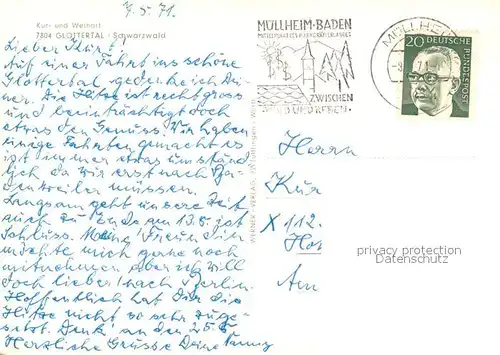 7.5.71.
Kur- und Weinort
7804 GLOTTERTAL · Schwarzwald
Lieber Kür !
Auf einer Fahrt ins schöne
Glottertal gedenke ich Dei-
ner. Die Hitze ist recht gross
und beeinträchtigt doch
etwas den Genuss. Wir haben
einige Fahrten gemacht es
ist immer etwas umständ
lich da wir erst nach Ba-
denweiler müssen.
Langsam geht unsere Zeit
auch zu Ende am 13.5. ist
Schluss. Meine Freundin
möchte mich gerne noch
mitnehmen aber ich will
doch lieber nach Berlin.
Hoffentlich hat Dir die
Hitze nicht so sehr zuge-
setzt. Denk' an den 25.5.
Herzliche Grüsse Deine
WERNER-VERLAG
MÜLLHEIM-BADEN
MITTELPUNKT DES MARKGRÄFLERLANDES
ZWISCHEN
WALD UND REBEN
MÜLLHEIM
20
DEUTSCHE BUNDESPOST
Herrn
Kür
X 112
Am
privacy protection
Datenschutz